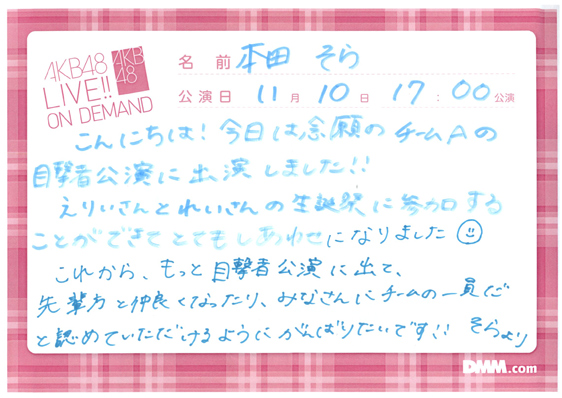 AKB48
LIVE!!
ON DEMAND
AKB
48
名前 本田 そら
公演日 11月10日 17:00公演
こんにちは！今日は念願のチームAの
目撃者公演に出演しました！！
えりいさんとれいさんの生誕祭に参加する
ことができてとてもしあわせになりました
これから、もっと目撃者公演に出て、
先輩方と仲良くなったり、みなさんにチームの一員だ
と認めていただけるようにがんばりたいです！！ そらより
DMM.com